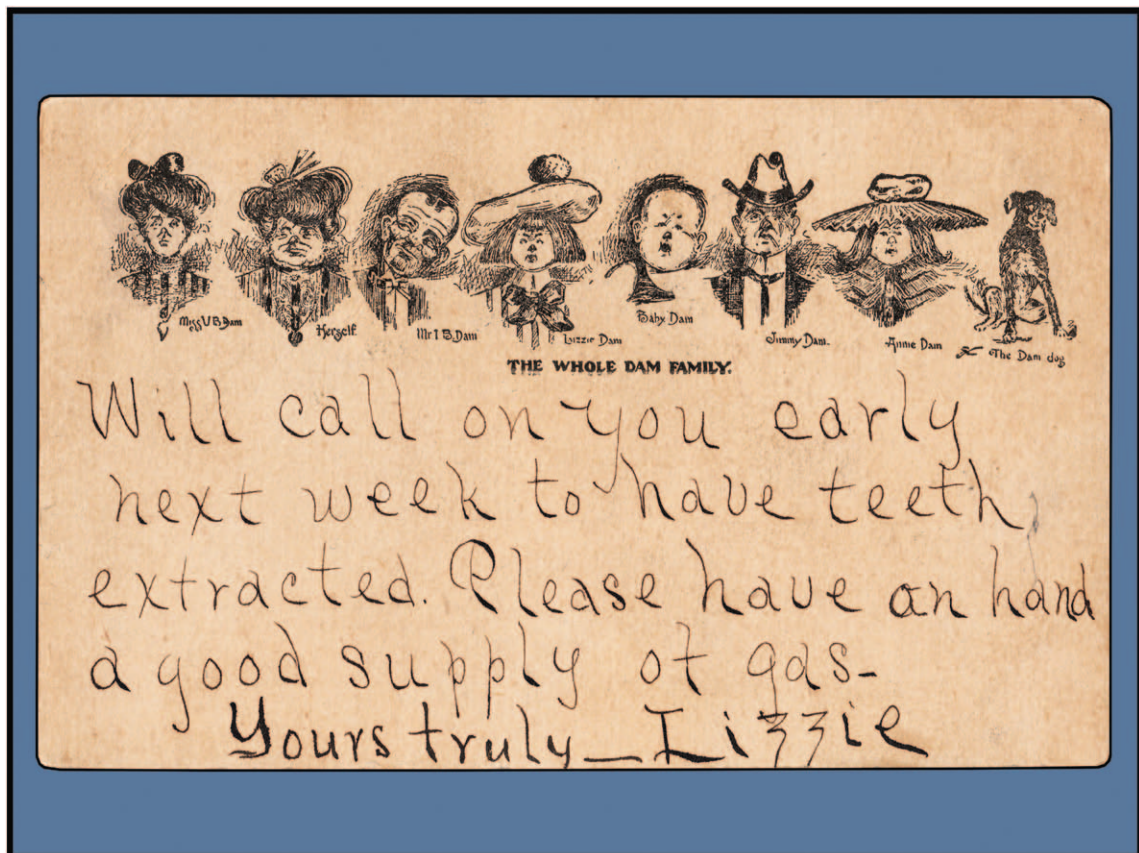 Miss U B Dam
Herself
Mr I B Dam
Lizzie Dam
Baby Dam
Jimmy Dam.
Annie Dam
The Dam dog
THE WHOLE DAM FAMILY.
Will call on you early
next week to have teeth
extracted. Please have on hand
a good supply of gas-
Yours truly_Lizzie